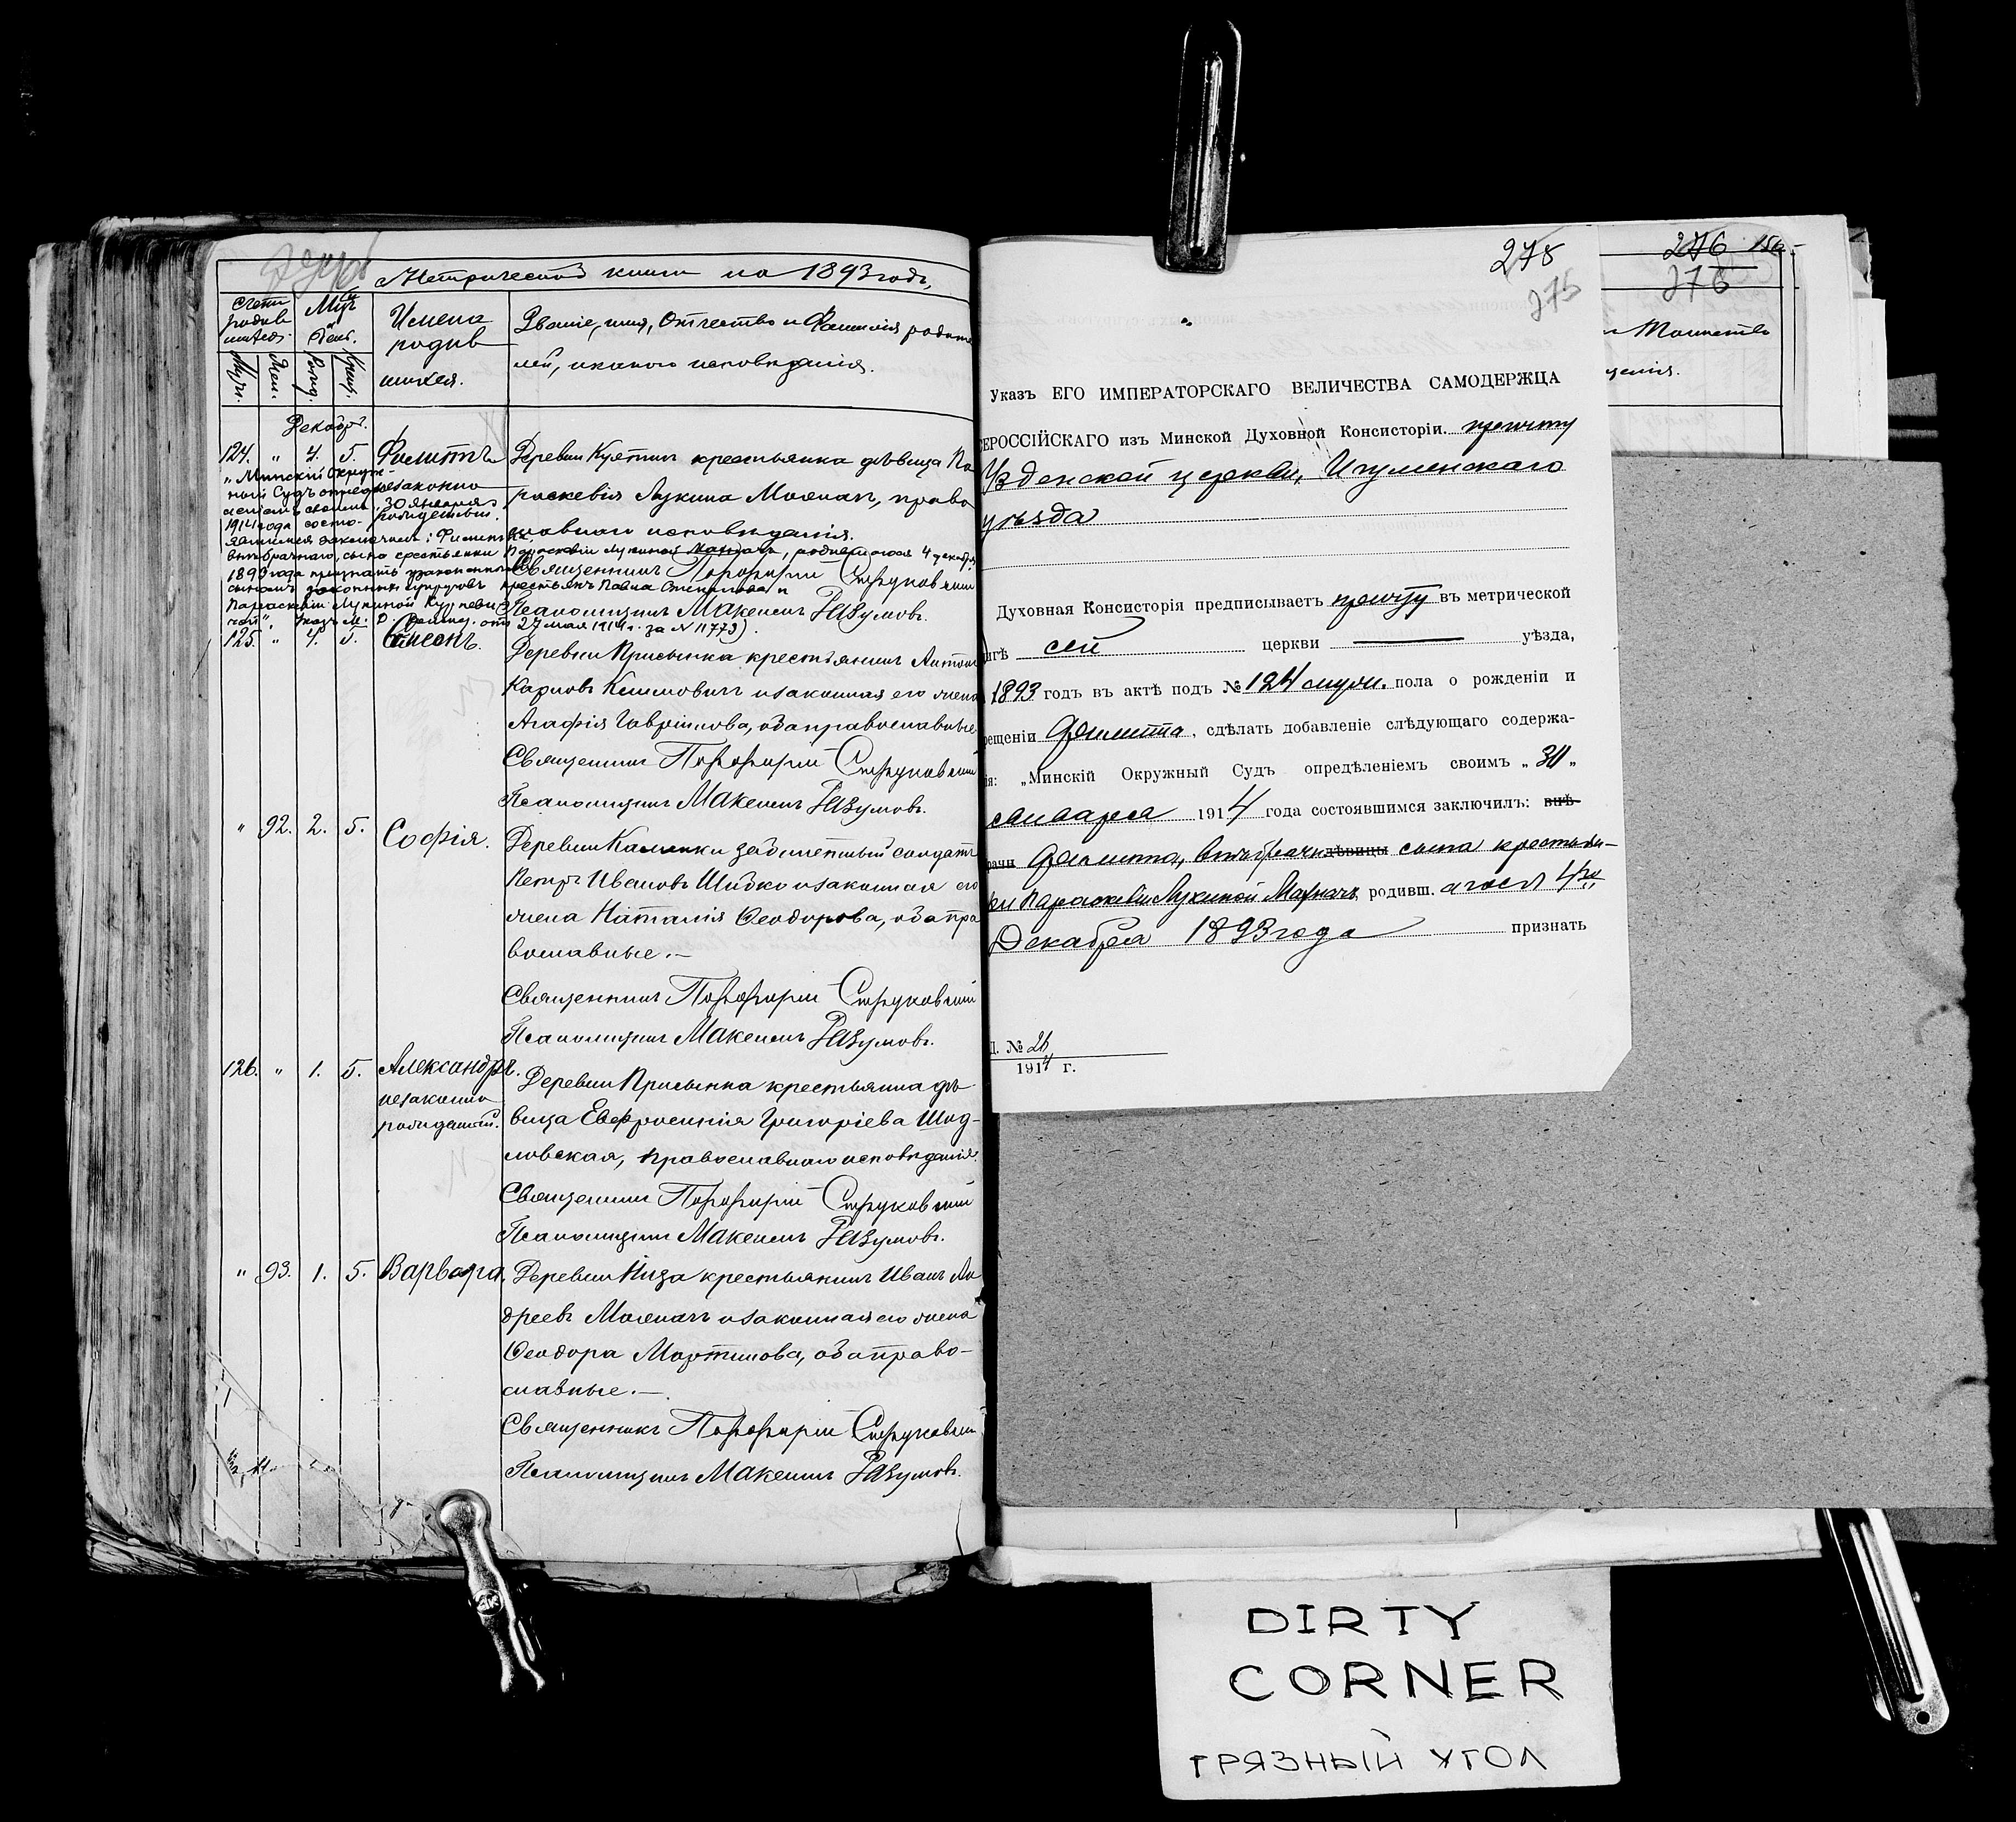 Метрической книги на 1893 годъ,
Счетъ родив шихся.
Мѣс. и День.
Имена родив шихся.
Званіе, имя, Отчество и Фамилія родите
лей, и какого исповѣданія.
Муж. Жен. Рожд. Крещ.
Декабрь.
124. " 4. 5. Филиппъ
незаконно
рожденный.
Деревни Кухтичъ крестьянка дѣвица Па
раскевія Лукина Махначъ, право
славнаго исповѣданія.
"Минскій Окруж-
ный Судъ опредѣ
леніемъ своимъ, 30 января
1914 года состо-
явшимся заключилъ: Филиппа,
внѣбрачнаго, сына крестьянки Параскевіи Лукиной Махначъ, родившагося 4 декабря
1893 года признать узаконеннымъ
сыномъ законныхъ супруговъ крестьянъ Павла и
Параскевіи Лукиной
27 мая 1914 г. за № 11773).
Священникъ Порфирій Струковскій
Псаломщикъ Максимъ Разумовъ.
125. " 4. 5.
Деревни Присынка крестьянинъ Антонъ
Карповъ Климовичъ и законная его жена
Агафія Гавріилова, оба православные
Священникъ Порфирій Струковскій
Псаломщикъ Максимъ Разумовъ.
" 92. 2. 5. Софія.
Деревни Каменки забилетный солдатъ
Петръ Ивановъ Шидко и законная его
жена Наталія Ѳеодорова, оба пра
вославные.—
Священникъ Порфирій Струковскій
Псаломщикъ Максимъ Разумовъ.
126. " 1. 5. Александръ.
незаконно
рожденный.
Деревни Присынка крестьянка дѣ-
вица Евфросинія Григоріева Шид-
ловская, православнаго исповѣданія.
Священникъ Порфирій Струковскій
Псаломщикъ Максимъ Разумовъ.
" 93. 1. 5. Варвара.
Деревни Низа крестьянинъ Иванъ Ан
дреевъ Махначъ и законная его жена
Ѳеодора Мартинова, оба право-
славные.—
Священникъ Порфирій Струковскій
Псаломщикъ Максимъ Разумовъ.
275
275
Указъ ЕГО ИМПЕРАТОРСКАГО ВЕЛИЧЕСТВА САМОДЕРЖЦА
ЕРОССІЙСКАГО изъ Минской Духовной Консисторіи. причту
Узденской церкви, Игуменскаго
уѣзда
Духовная Консисторія предписываетъ причту въ метрической
игѣ сей церкви уѣзда,
1893 годъ въ актѣ подъ № 124 муж. пола о рожденіи и
рещеніи Филиппа, сдѣлать добавленіе слѣдующаго содержа-
ія: „Минскій Окружный Судъ опредѣленіемъ своимъ „30„
января 1914 года состоявшимся заключилъ: внѣ-
рачн Филиппа, внѣбрачн дѣвицы сына крестьян-
ки Параскевіи Лукиной Махначъ, родивш. агося 4го
Декабря 1893 года признать
Д. № 26
1914 г.
276 156
276
и Таинство
щенія.
DIRTY
CORNER
ГРЯЗНЫЙ УГОЛ